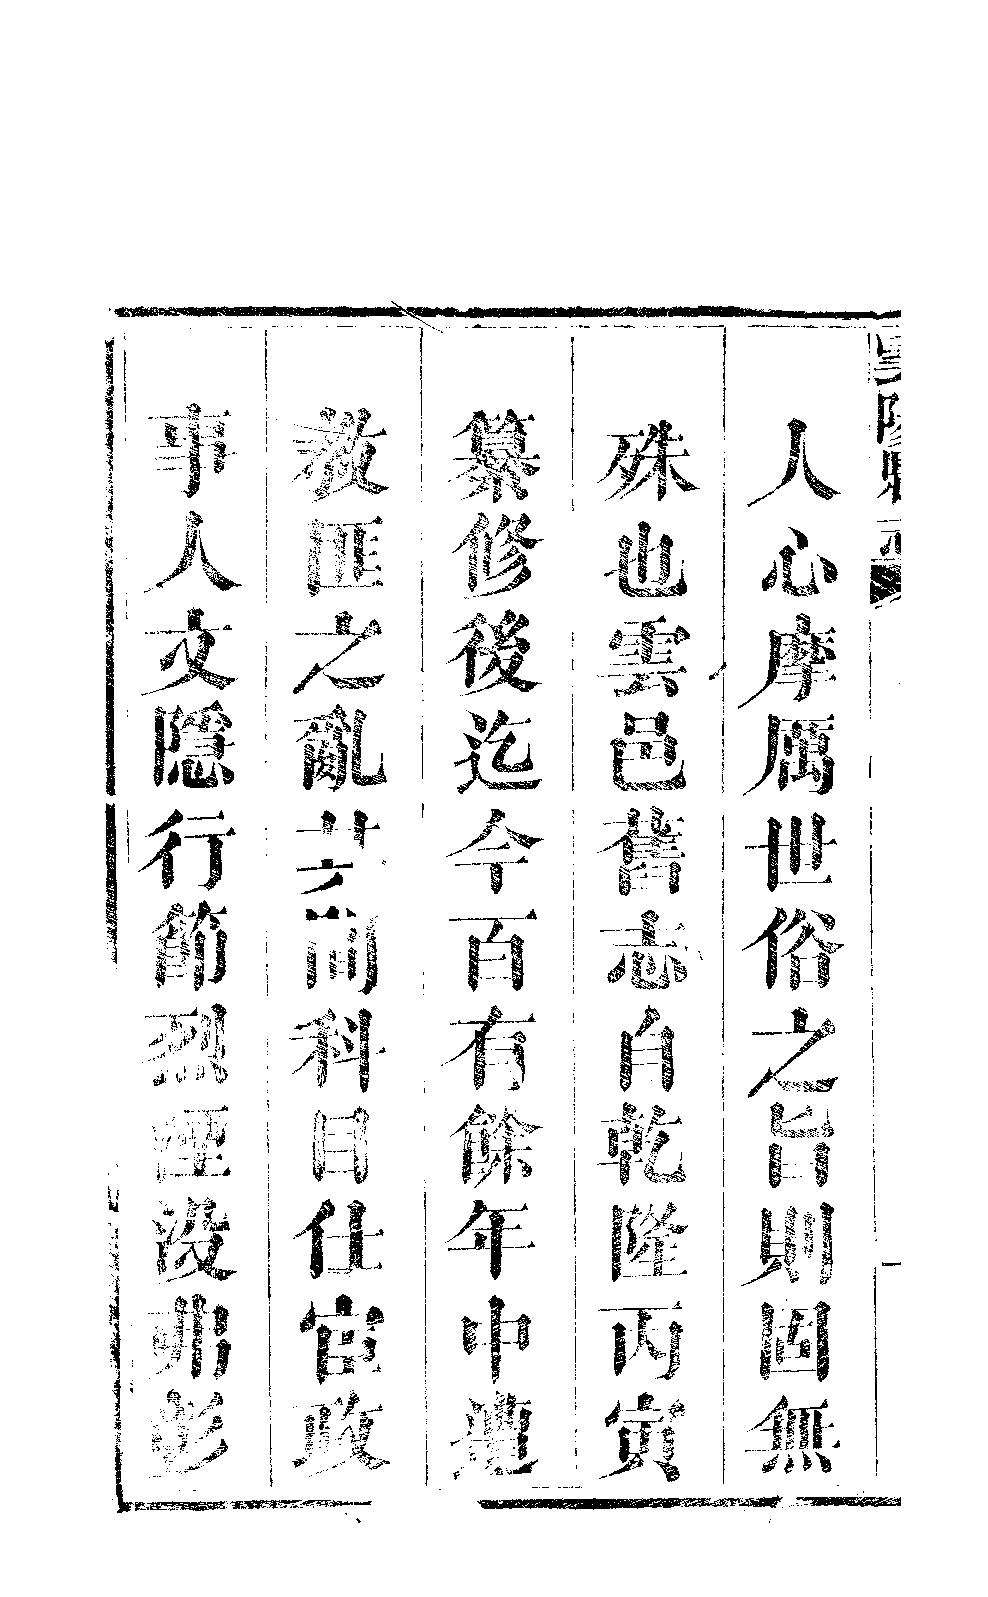 人心摩厲世俗之旨則固無
殊也雲邑舊志自乾隆丙寅
纂修後迄今百有餘年中遭
教匪之亂其間科目仕宦政
事人文隱行節烈湮没弗彰